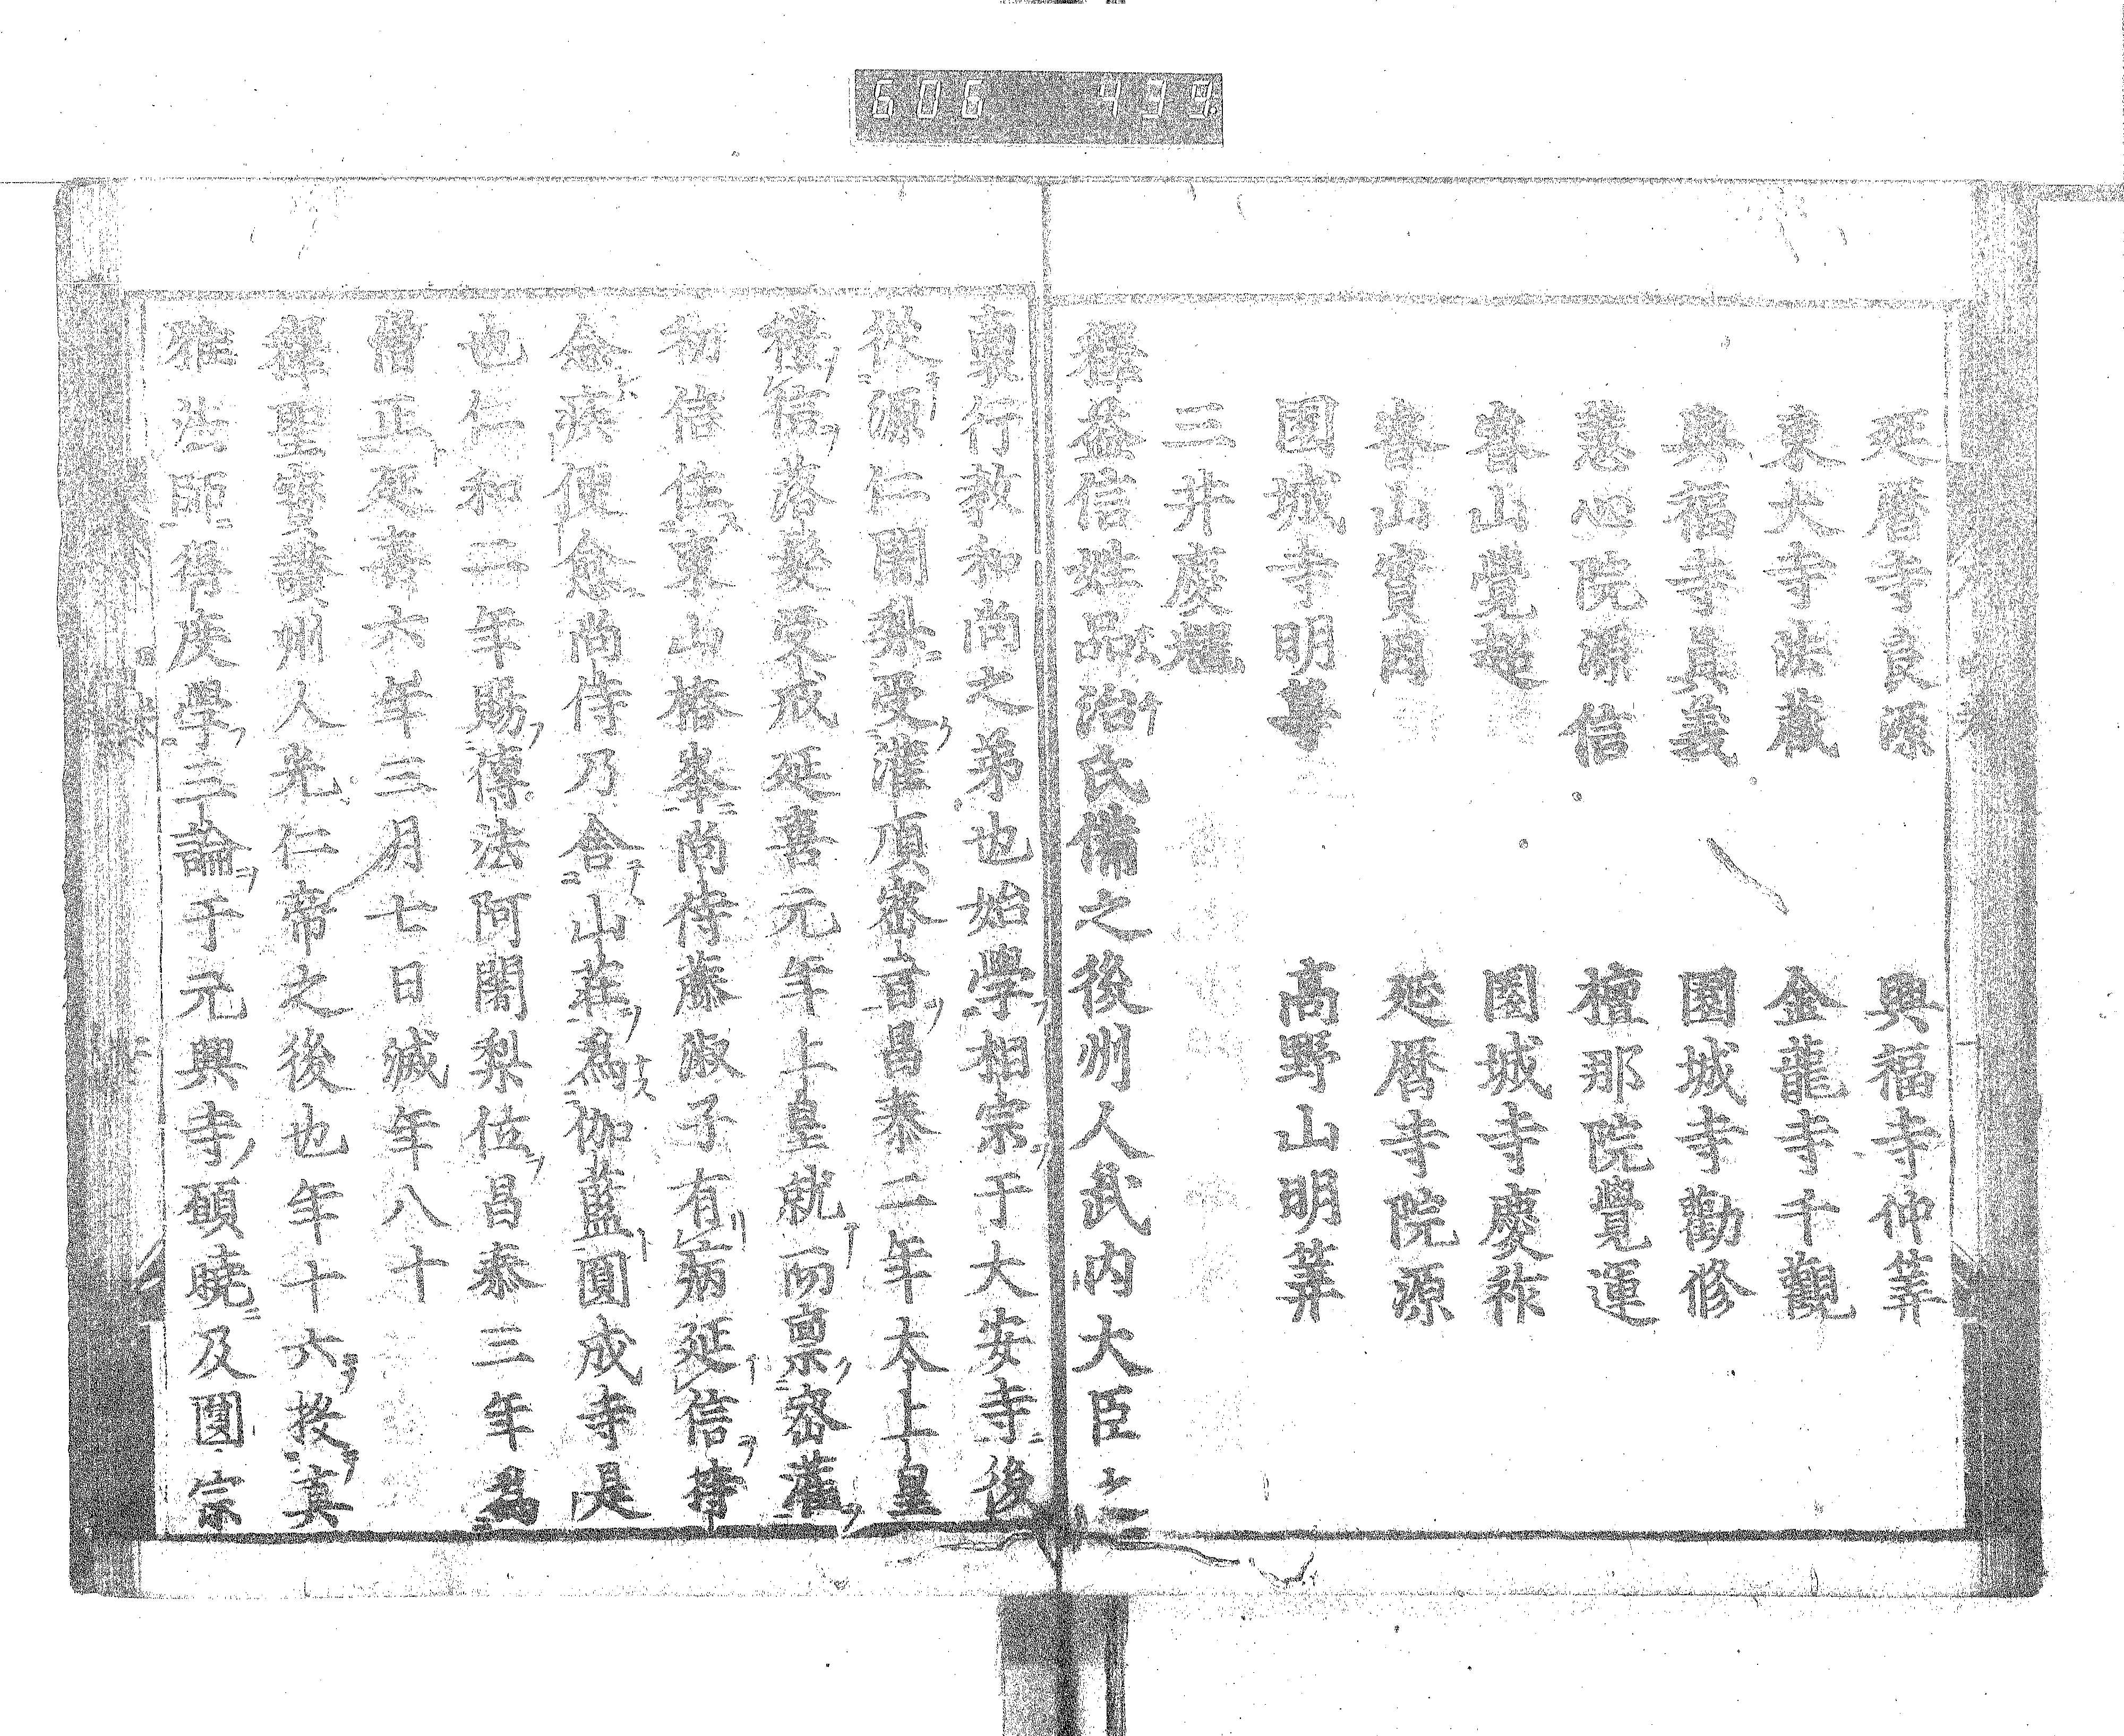 606 439
延曆寺良源 興福寺仲筭
東大寺法藏 金龍寺千觀
興福寺眞義 園城寺勸修
慧心院源信 檀那院覺運
睿山覺超 園城寺慶祚
睿山實因 延曆寺院源
園城寺明尊 高野山明筭
三井慶耀
釋益信姓品治氏備之後州人武內大臣之
裔行教和尚之弟也始學相宗于大安寺後
從源仁闍梨受灌頂密旨昌泰二年太上皇
禮信落髮受戒延喜元年上皇就而禀密灌
初信住東山椿峯尚侍藤淑子有病延信持
念疾便愈尚侍乃舍山莊爲伽藍圓成寺是
也仁和二年賜傳法阿闍梨位昌泰三年爲
僧正延喜六年三月七日滅年八十
釋聖寶讚州人光仁帝之後也年十六投眞
雅法師得度學三論于元興寺願曉及圓宗